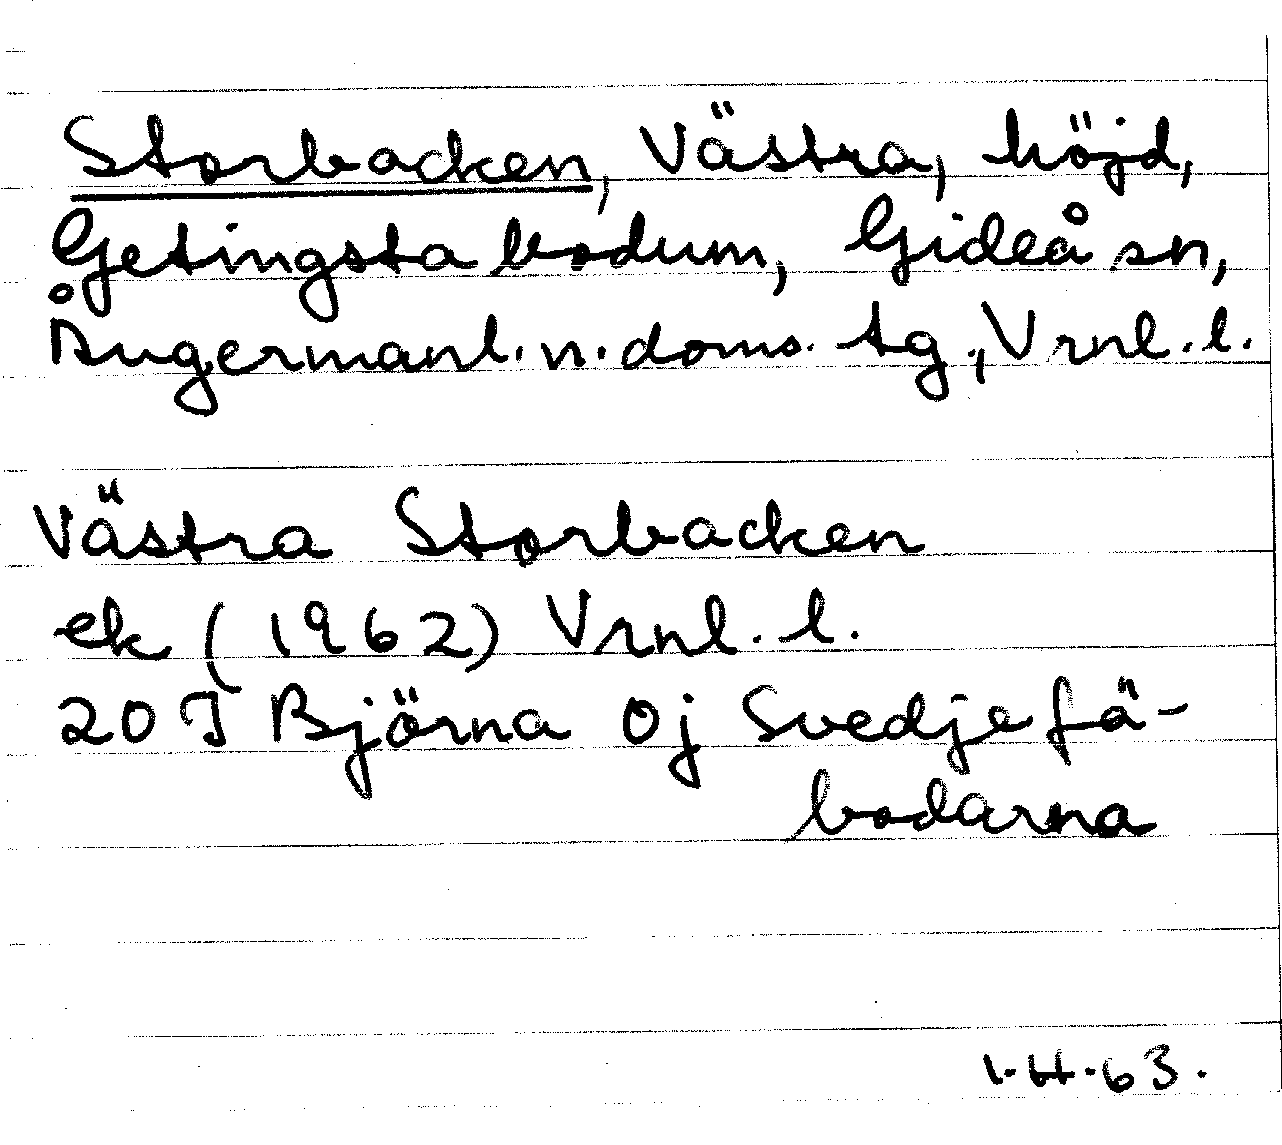 Storbacken, Västra, höjd,
Getingsta bodum, Gideå sn,
Ångermanl. n. doms. tg., Vrnl. l.
Västra Storbacken
ek (1962) Vrnl. l.
20 J Björna 0j Svedjefä-
bodarna
63.